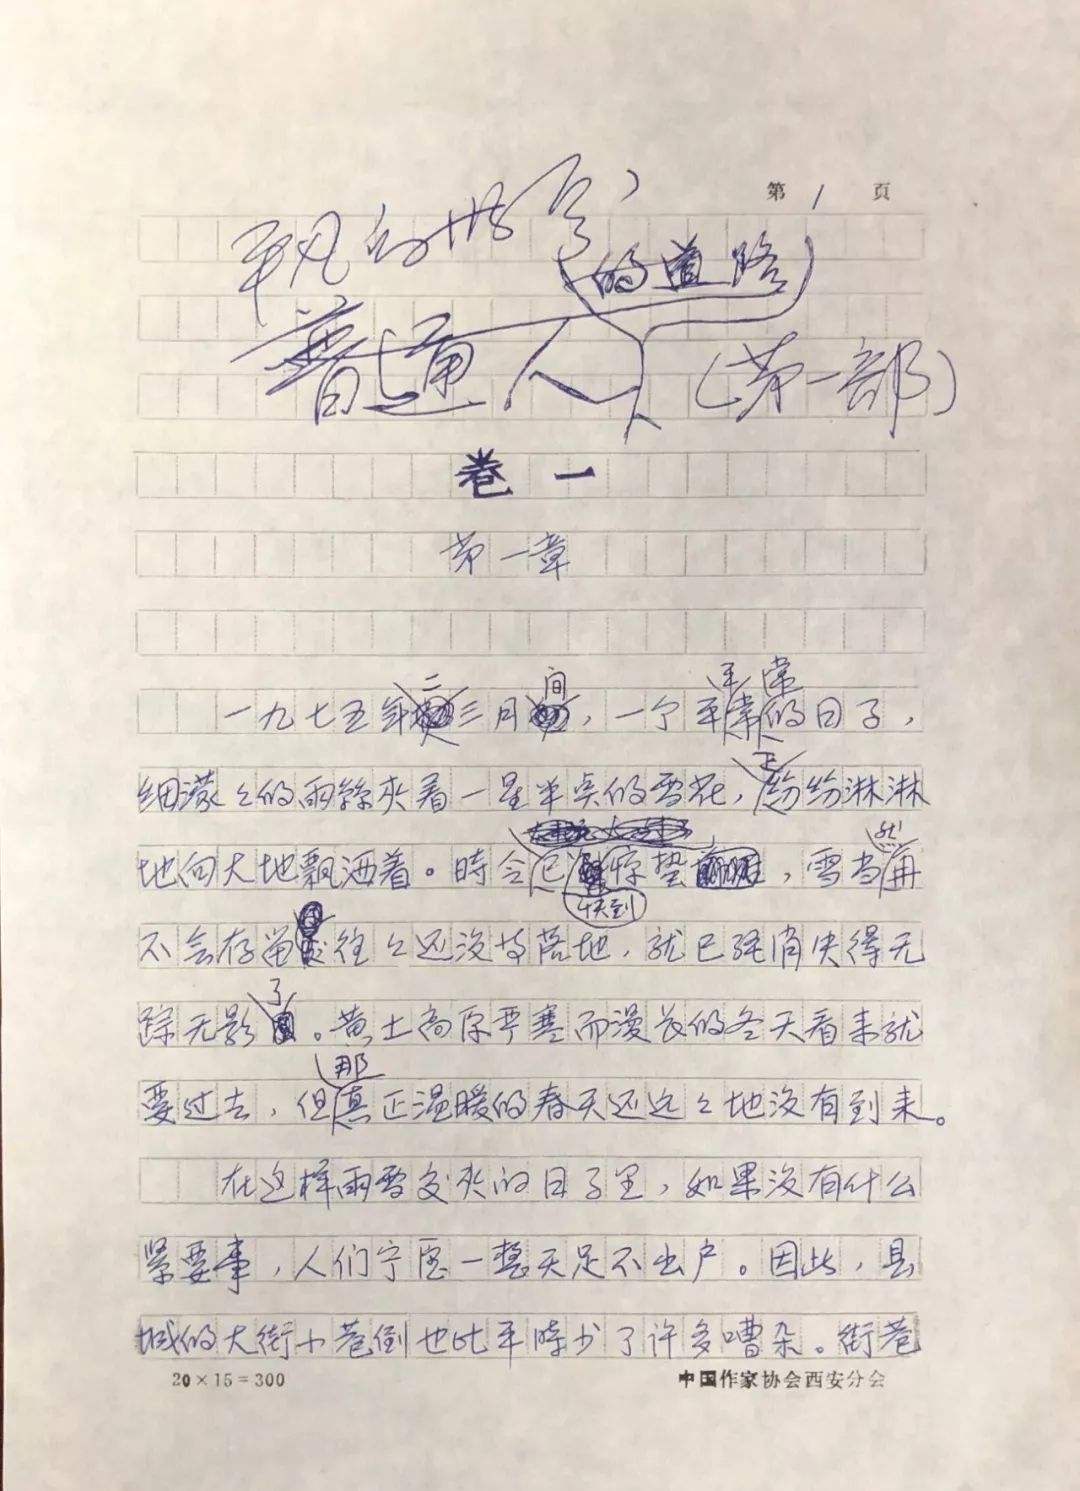 第1页
平凡的世界
的道路
普通人(第一部)
卷一
第一章
二 间 平常
一九七五年三月,一个平常的日子,
正
细濛々的雨丝夹着一星半点的雪花,纷纷淋淋
然
地向大地飘洒着。時令已惊蛰,雪当再
快到
不会存留往々还没等落地,就已经消失得无
了
踪无影。黄土高原严寒而漫长的冬天看来就
那
要过去,但真正温暖的春天还远々地没有到来。
在这样雨雪交夹的日子里,如果没有什么
紧要事,人们宁愿一整天足不出户。因此,县
城的大街小巷倒也比平時少了许多嘈杂。街巷
20×15=300 中国作家协会西安分会